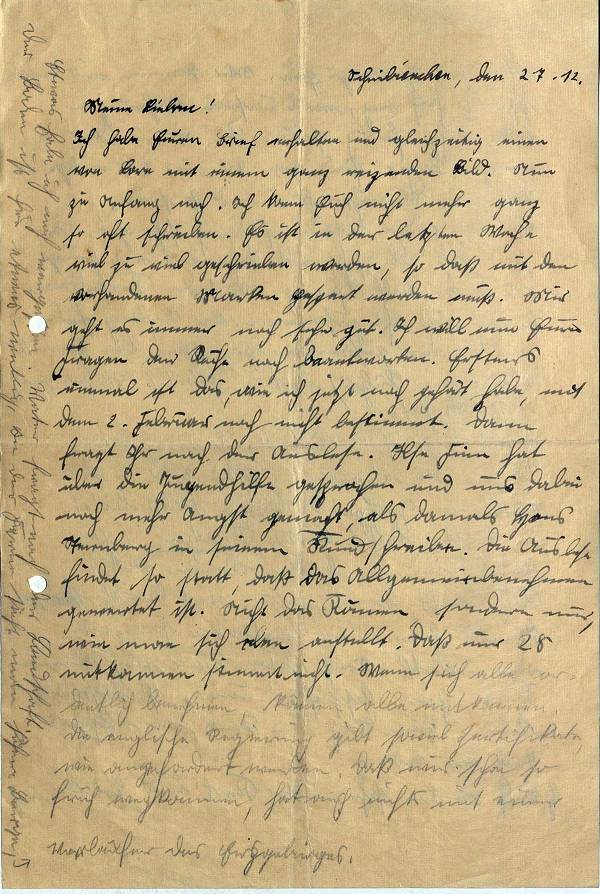 Schniebinchen, den 27.12.
Meine Lieben!
Ich habe Euren Brief erhalten und gleichzeitig einen
von Lore mit einem ganz reizenden Bild. Nun
zu Anfang noch. Ich kann Euch nicht mehr ganz
so oft schreiben. Es ist in der letzten Woche
viel zu viel geschrieben worden, so daß mit den
vorhandenen Marken gespart werden muß. Mir
geht es immer noch sehr gut. Ich will nun Eure
Fragen der Reihe nach beantworten. Erstens
einmal ist das, wie ich jetzt noch gehört habe, mit
dem 2. Februar noch nicht bestimmt. Dann
fragt Ihr nach der Auslese. Ilse hat
über die Jugendhilfe gesprochen und uns dabei
noch mehr Angst gemacht, als damals Hans
Sternberg in seinem Rundschreiben. Die Auslese
findet so statt, daß das Allgemeinbenehmen
gewertet ist. Nicht das Können sondern nur,
wie man sich anstellt. Daß nur 28
mitkommen stimmt nicht. Wenn sich alle or-
dentlich benehmen können alle mitkommen.
Die englische Regierung gibt soviel Zertifikate,
wie angefordert werden. Daß wir schon so
früh wegkommen, hat auch nichts mit einer
Etwas habe ich noch vergessen. Vater fragt nach der Landschaft.
Der Boden ist hier etwas wellig, in der Ferne sieht man höhere Berge,
Vorläufer des Erzgebirges.